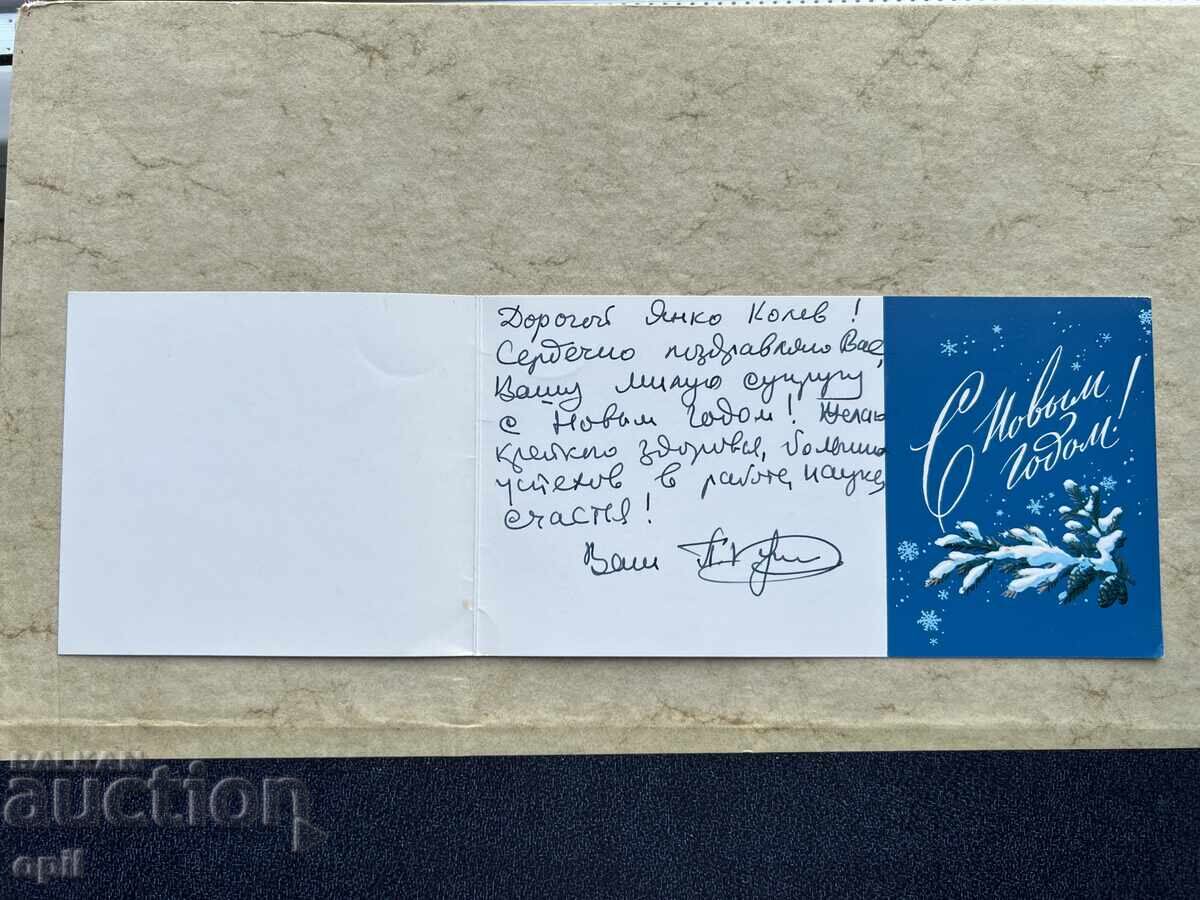 Дорогой Янко Колев!
Сердечно поздравляю Вас,
Вашу милую супругу
с Новым годом! Желаю
крепкого здоровья, больших
успехов в работе, науке,
счастья!
Ваш
С Новым
годом!
BALKAN
auction
opil